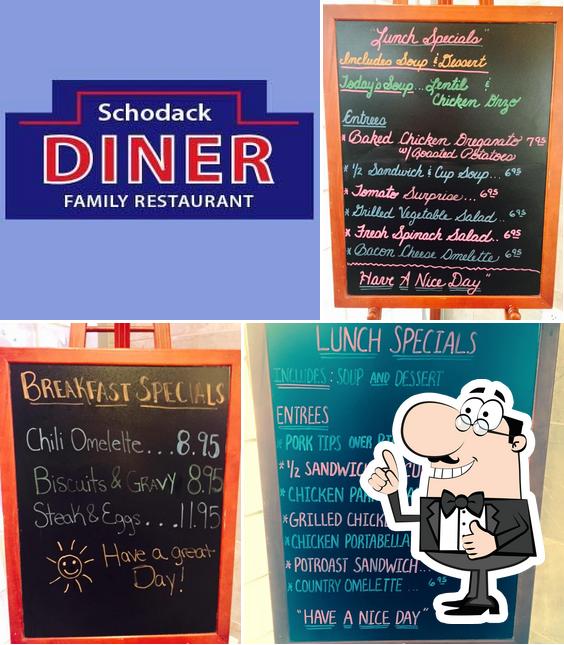 Schodack
DINER
FAMILY RESTAURANT
"Lunch Specials"
Includes Soup & Dessert
Today's Soup... Lentil &
Chicken Orzo
Entrees
* Baked Chicken Oreganato 7.95
w/ Roasted Potatoes
* 1/2 Sandwich & Cup Soup... 6.95
* Tomato Surprise... 6.95
* Grilled Vegetable Salad.. 6.95
* Fresh Spinach Salad.. 6.95
* Bacon Cheese Omelette 6.95
"Have A Nice Day"
BREAKFAST SPECIALS
Chili Omelette... 8.95
Biscuits & GRAVY 8.95
Steak & Eggs... 11.95
Have a great
Day!
LUNCH SPECIALS
INCLUDES: SOUP AND DESSERT
ENTREES
* PORK TIPS OVER
* 1/2 SANDWICH
* CHICKEN
* GRILLED
* CHICKEN PORTABELLA
* POTROAST SANDWICH...
* COUNTRY OMELETTE ... 6.95
"HAVE A NICE DAY"